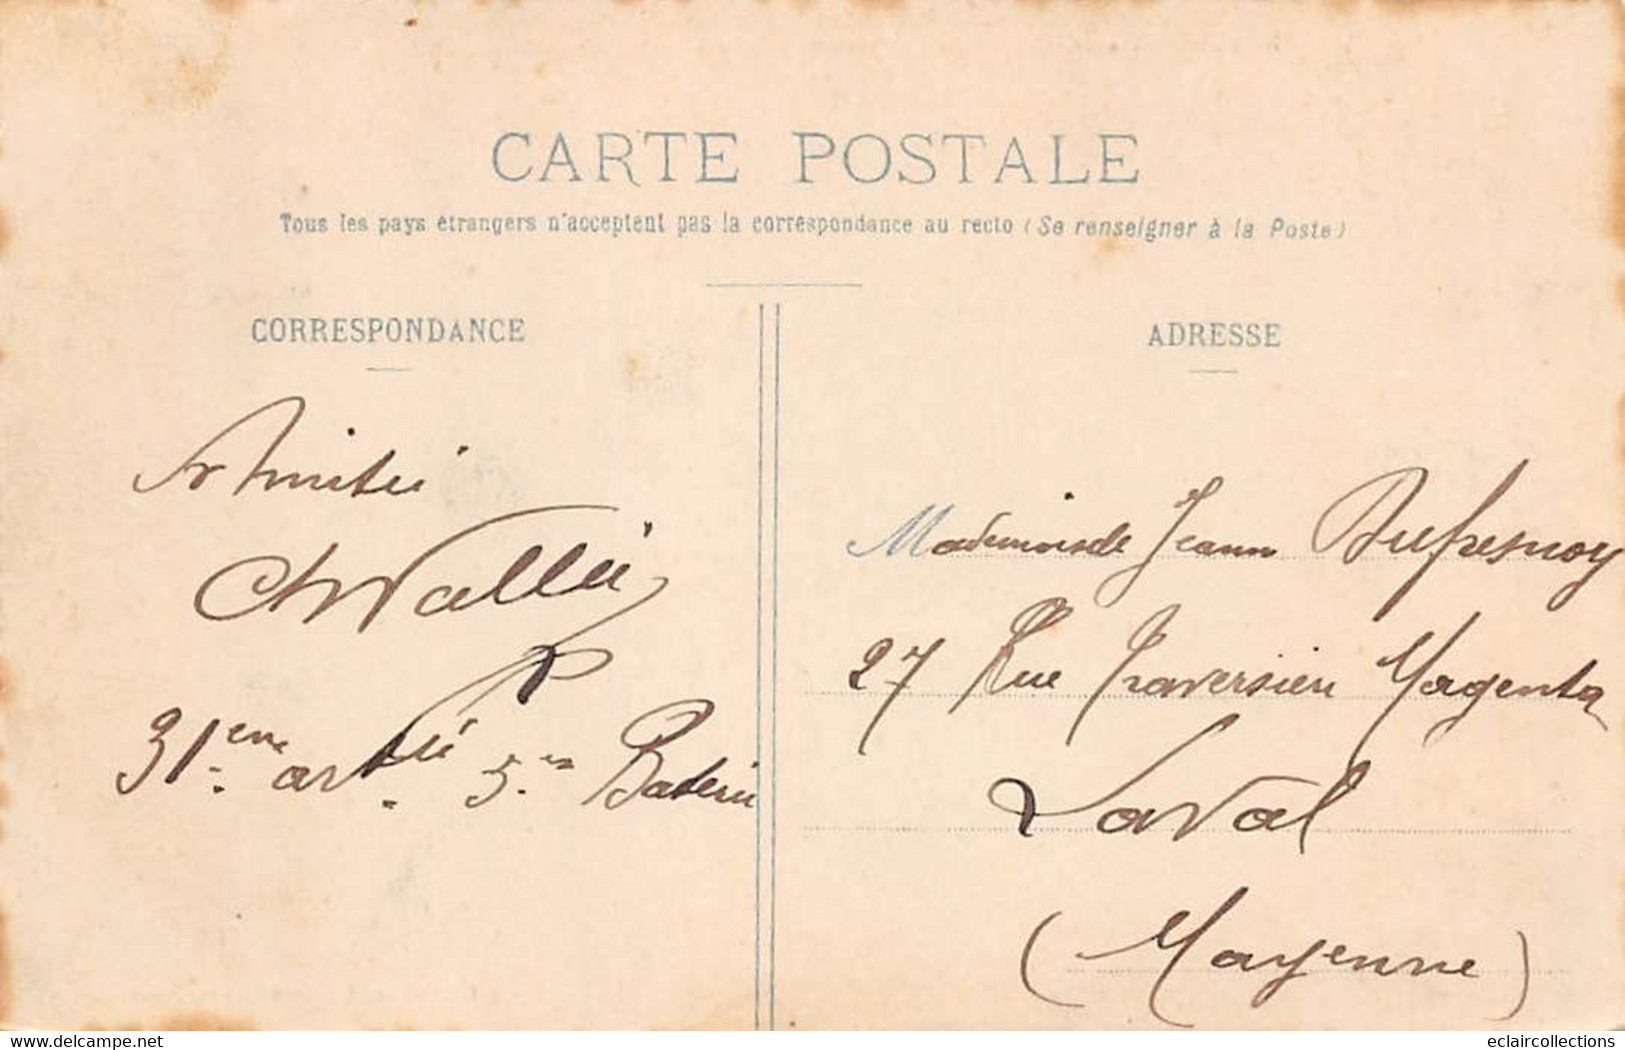 CARTE POSTALE
Tous les pays étrangers n'acceptent pas la correspondance au recto (Se renseigner à la Poste)
CORRESPONDANCE
Amitié
Vallée
31ème artie 5e Batterie
ADRESSE
Mademoiselle Jeanne Dufresnoy
27 Rue Traversière Magenta
Laval
(Mayenne)
www.delcampe.net
eclaircollections